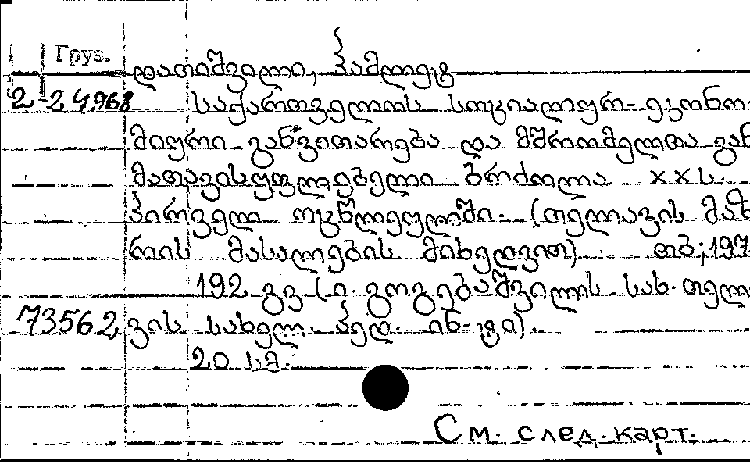 Груз.
დათიშვილი, ჰამლეტ
2-24968 საქართველოს სოციალურ-ეკონო
მიური განვითარება და მშრომელთა გან
მათავისუფლებელი ბრძოლა XX ს.
პირველ ოცწლეულში. (თელავის მაზ
რის მასალების მიხედვით) თბ., 197
192 გვ (ი. გოგებაშვილის სახ. თელა
73562 ვის სახელ. პედ. ინ-ტი).
20 სმ.
См. след. карт.